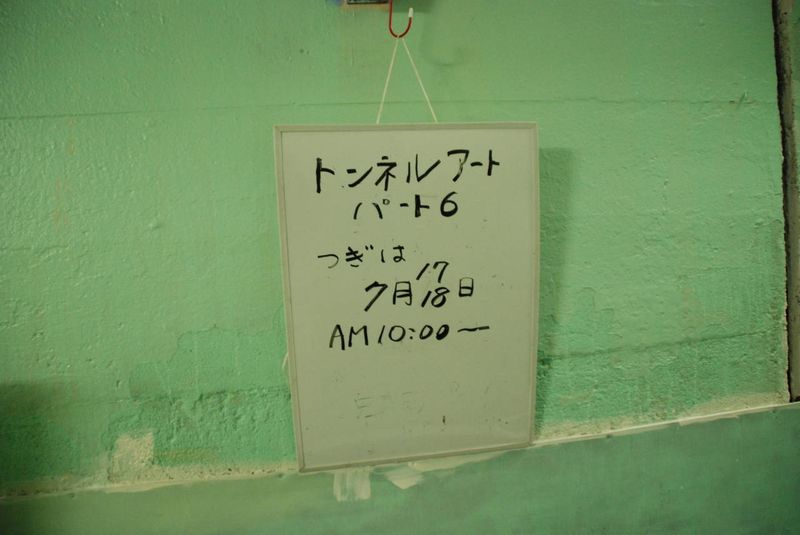 トンネルアート
パート6
つぎは
7月17
18日
AM10:00〜